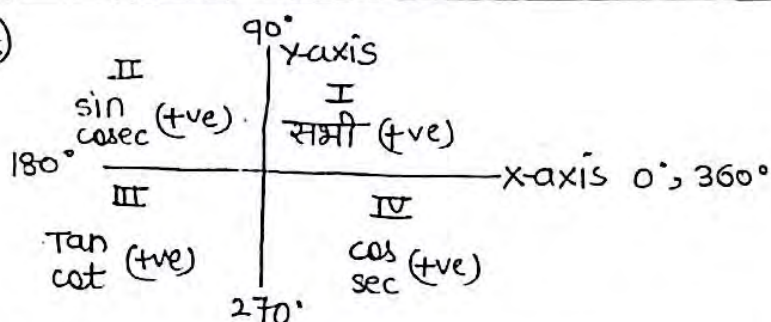 90°
Y-axis
II
sin
cosec (+ve)
I
सभी (+ve)
180°
X-axis 0°, 360°
III
Tan
cot (+ve)
IV
cos
sec (+ve)
270°